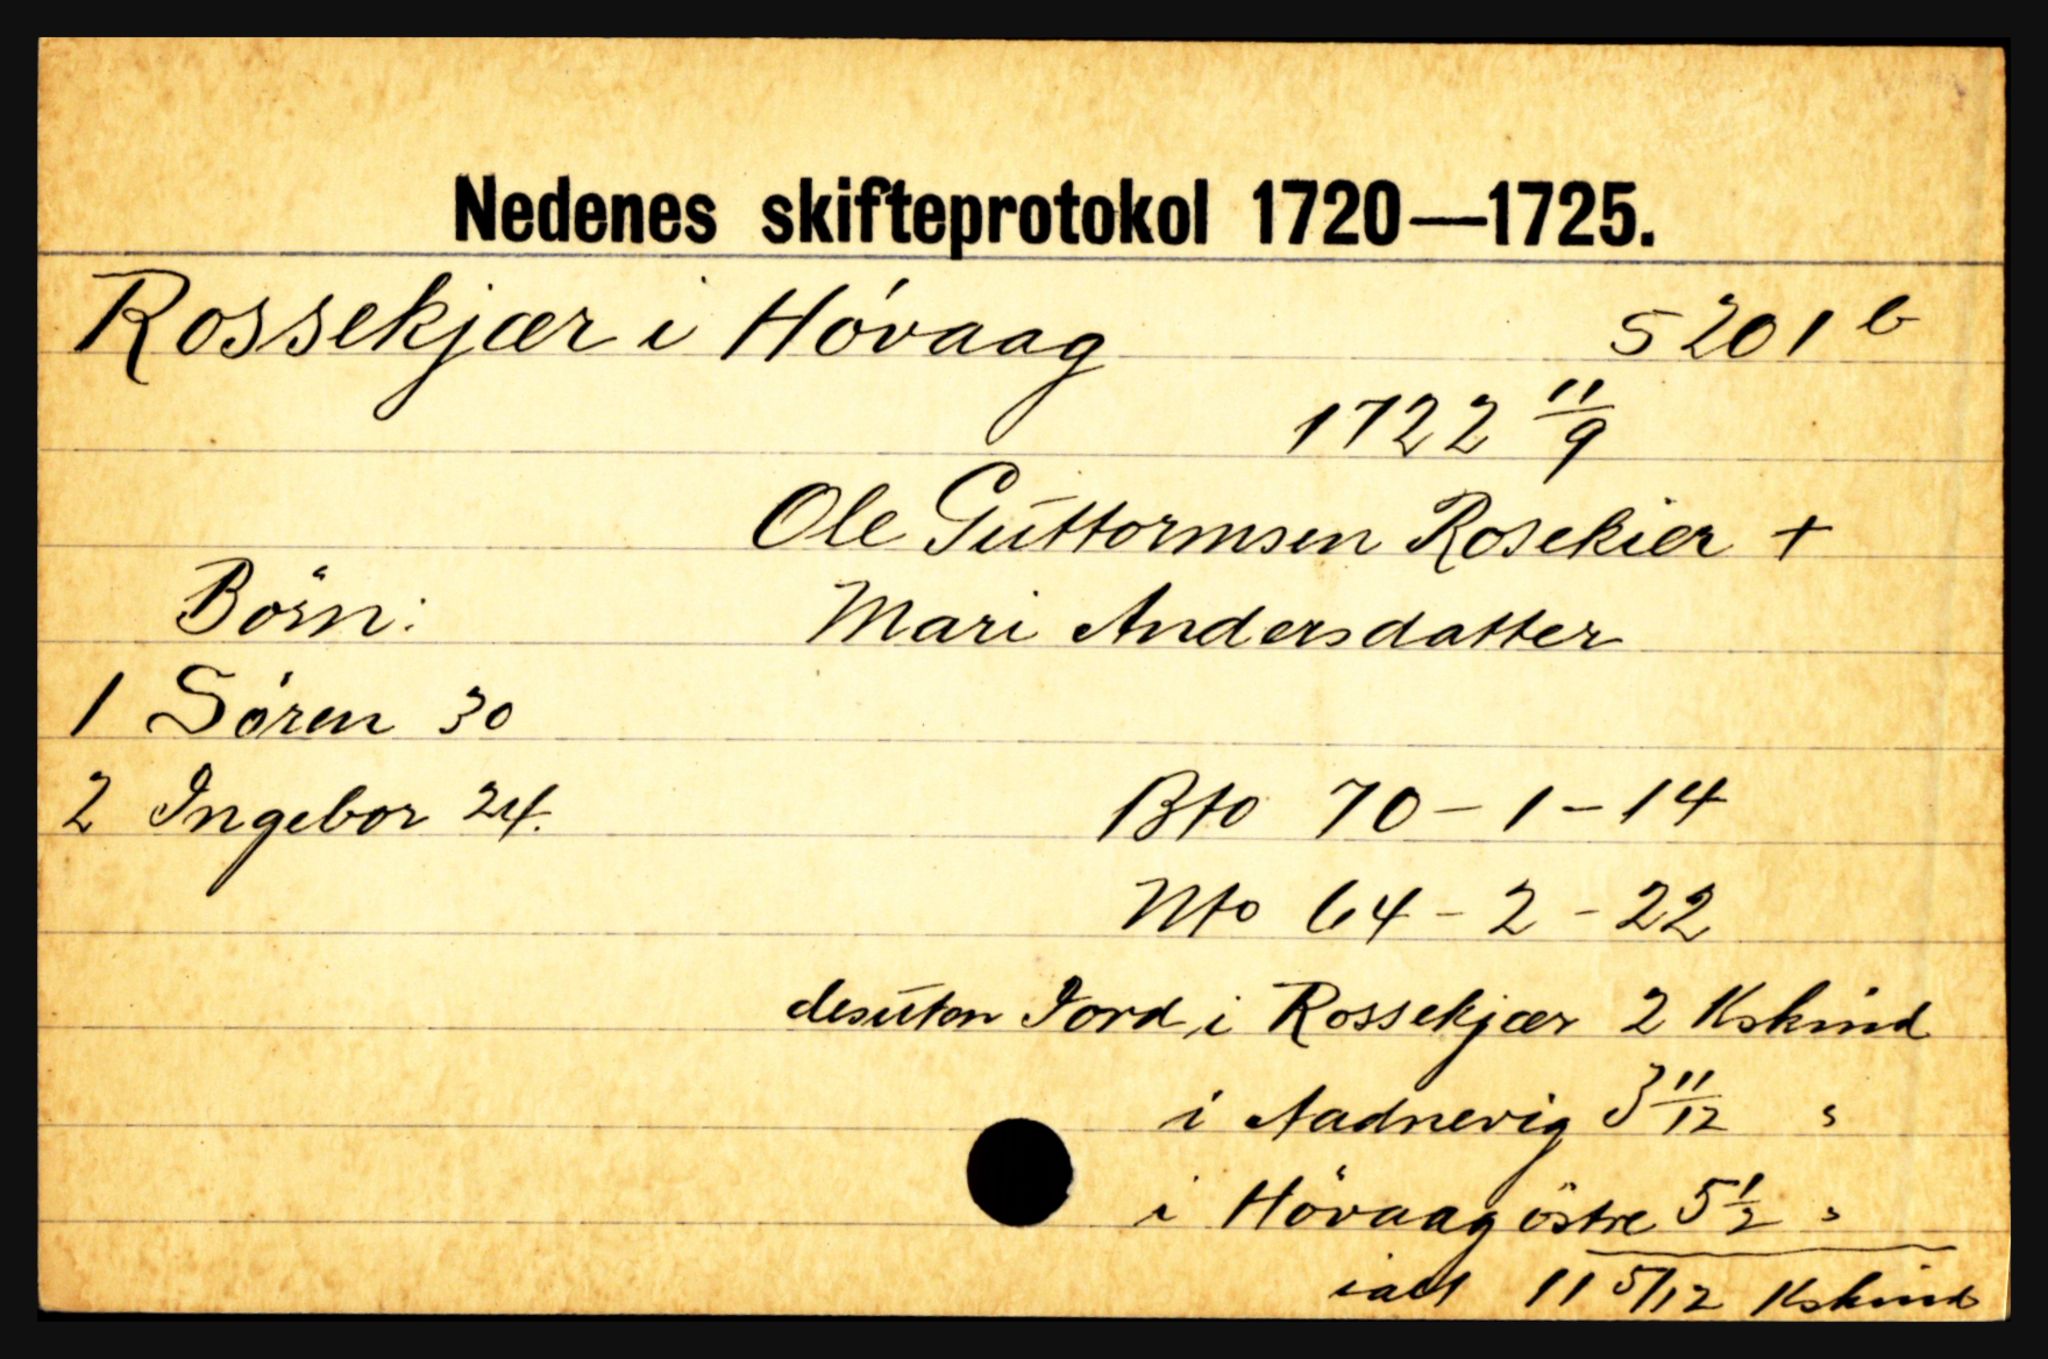 Nedenes skifteprotokol 1720—1725.
Rossekjær i Hövaag 5 201 b
1722 11/9
Ole Guttormsen Rosekier +
Börn: Mari Andersdatter
1 Sören 30
2 Ingebor 24. Bto 70 - 1 - 14
Nto 64 - 2 - 22
desuten Jord i Rossekjær 2 Kskind
i Aadnevig 3 11/12 "
i Hövaag östre 5 1/2 "
ialt 11 5/12 Kskind